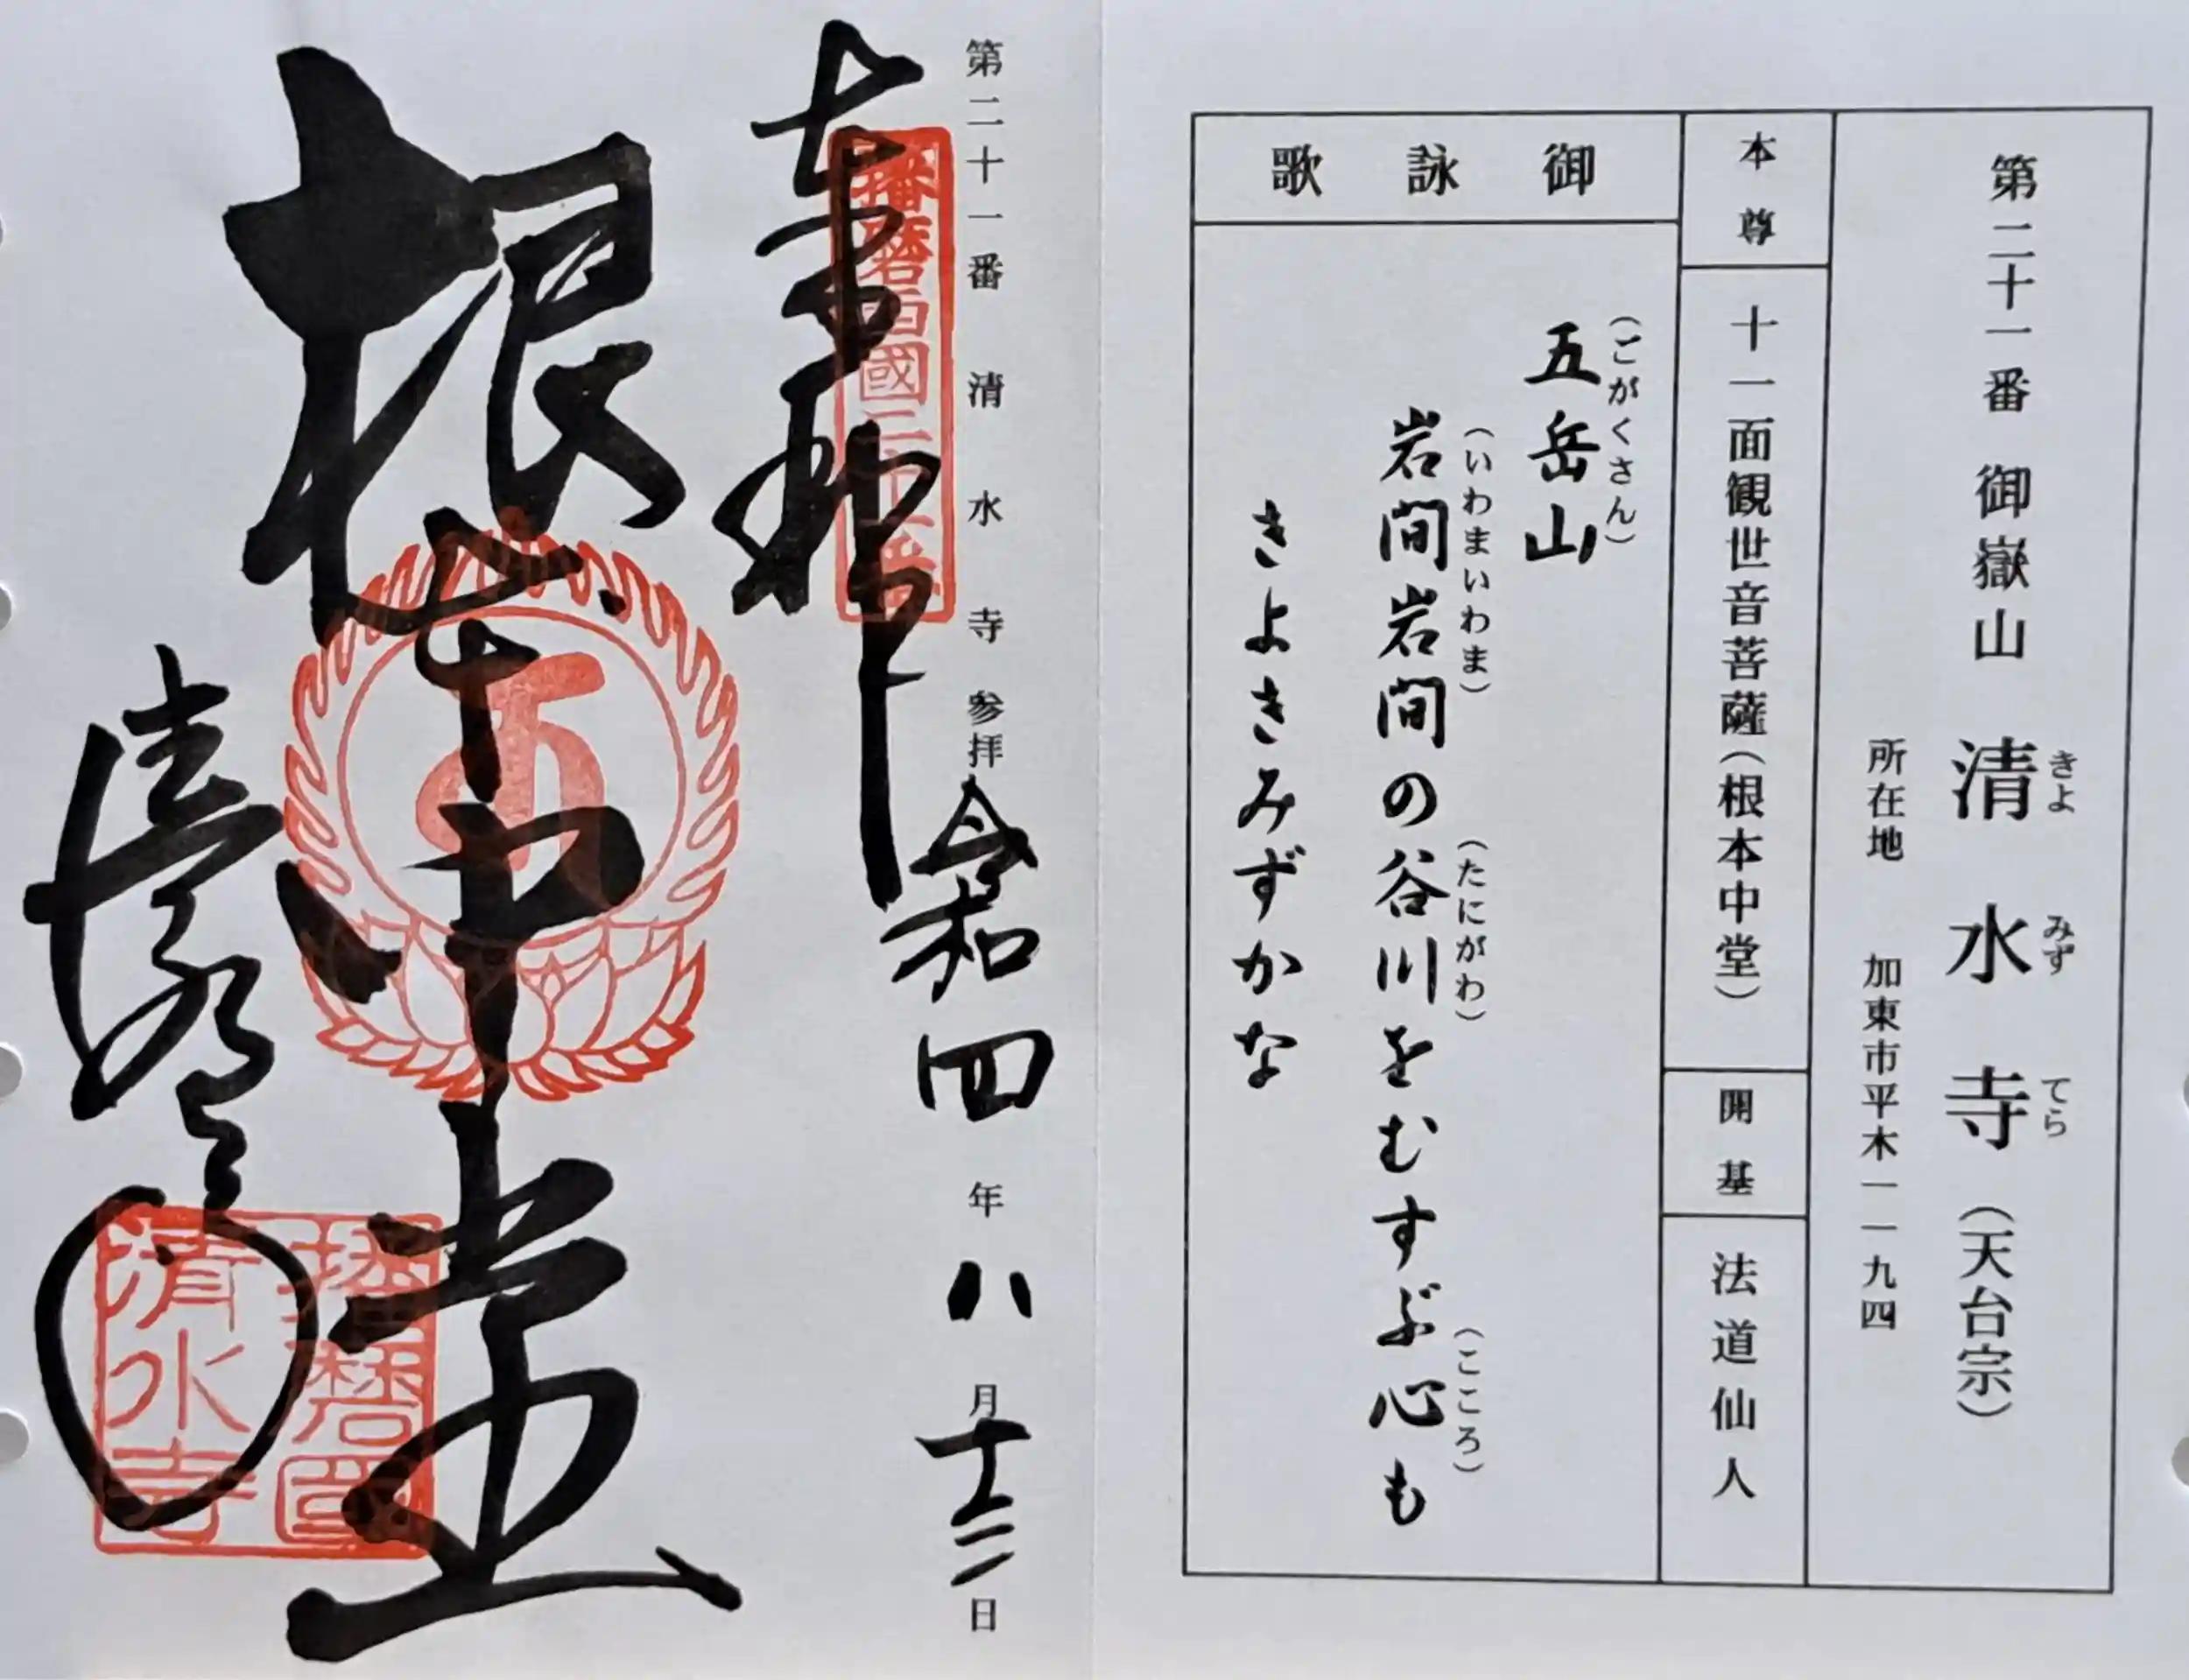 第二十一番 御嶽山 清水寺(天台宗)
きよ みず てら
所在地 加東市平木一一九四
本尊
十一面観世音菩薩(根本中堂)
開基
法道仙人
御詠歌
(ごがくさん)
五岳山
(いわまいわま) (たにがわ) (こころ)
岩間岩間の谷川をむすぶ心も
きよきみずかな
第二十一番 清水寺 参拝 令和四年八月十三日
奉拝
播磨西國二十一番
根本中堂
清水寺
播磨國
清水寺